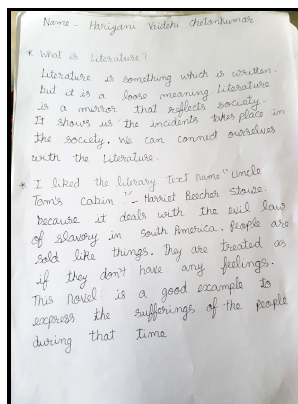 Name - Hariyani Vaidehi Chetankumar
* What is Literature?
Literature is something which is written.
but it is a loose meaning. Literature
is a mirror that reflects society.
It shows us the incidents takes place in
the society. We can connect ourselves
with the Literature.
* I liked the literary Text Name "Uncle
Tom's cabin" - Harriet Beecher Stowe.
because it deals with the evil law
of slavory in south America. People are
sold like things. They are treated as
if they don't have any feelings.
This Novel is a good example to
express the sufferings of the people
during that time